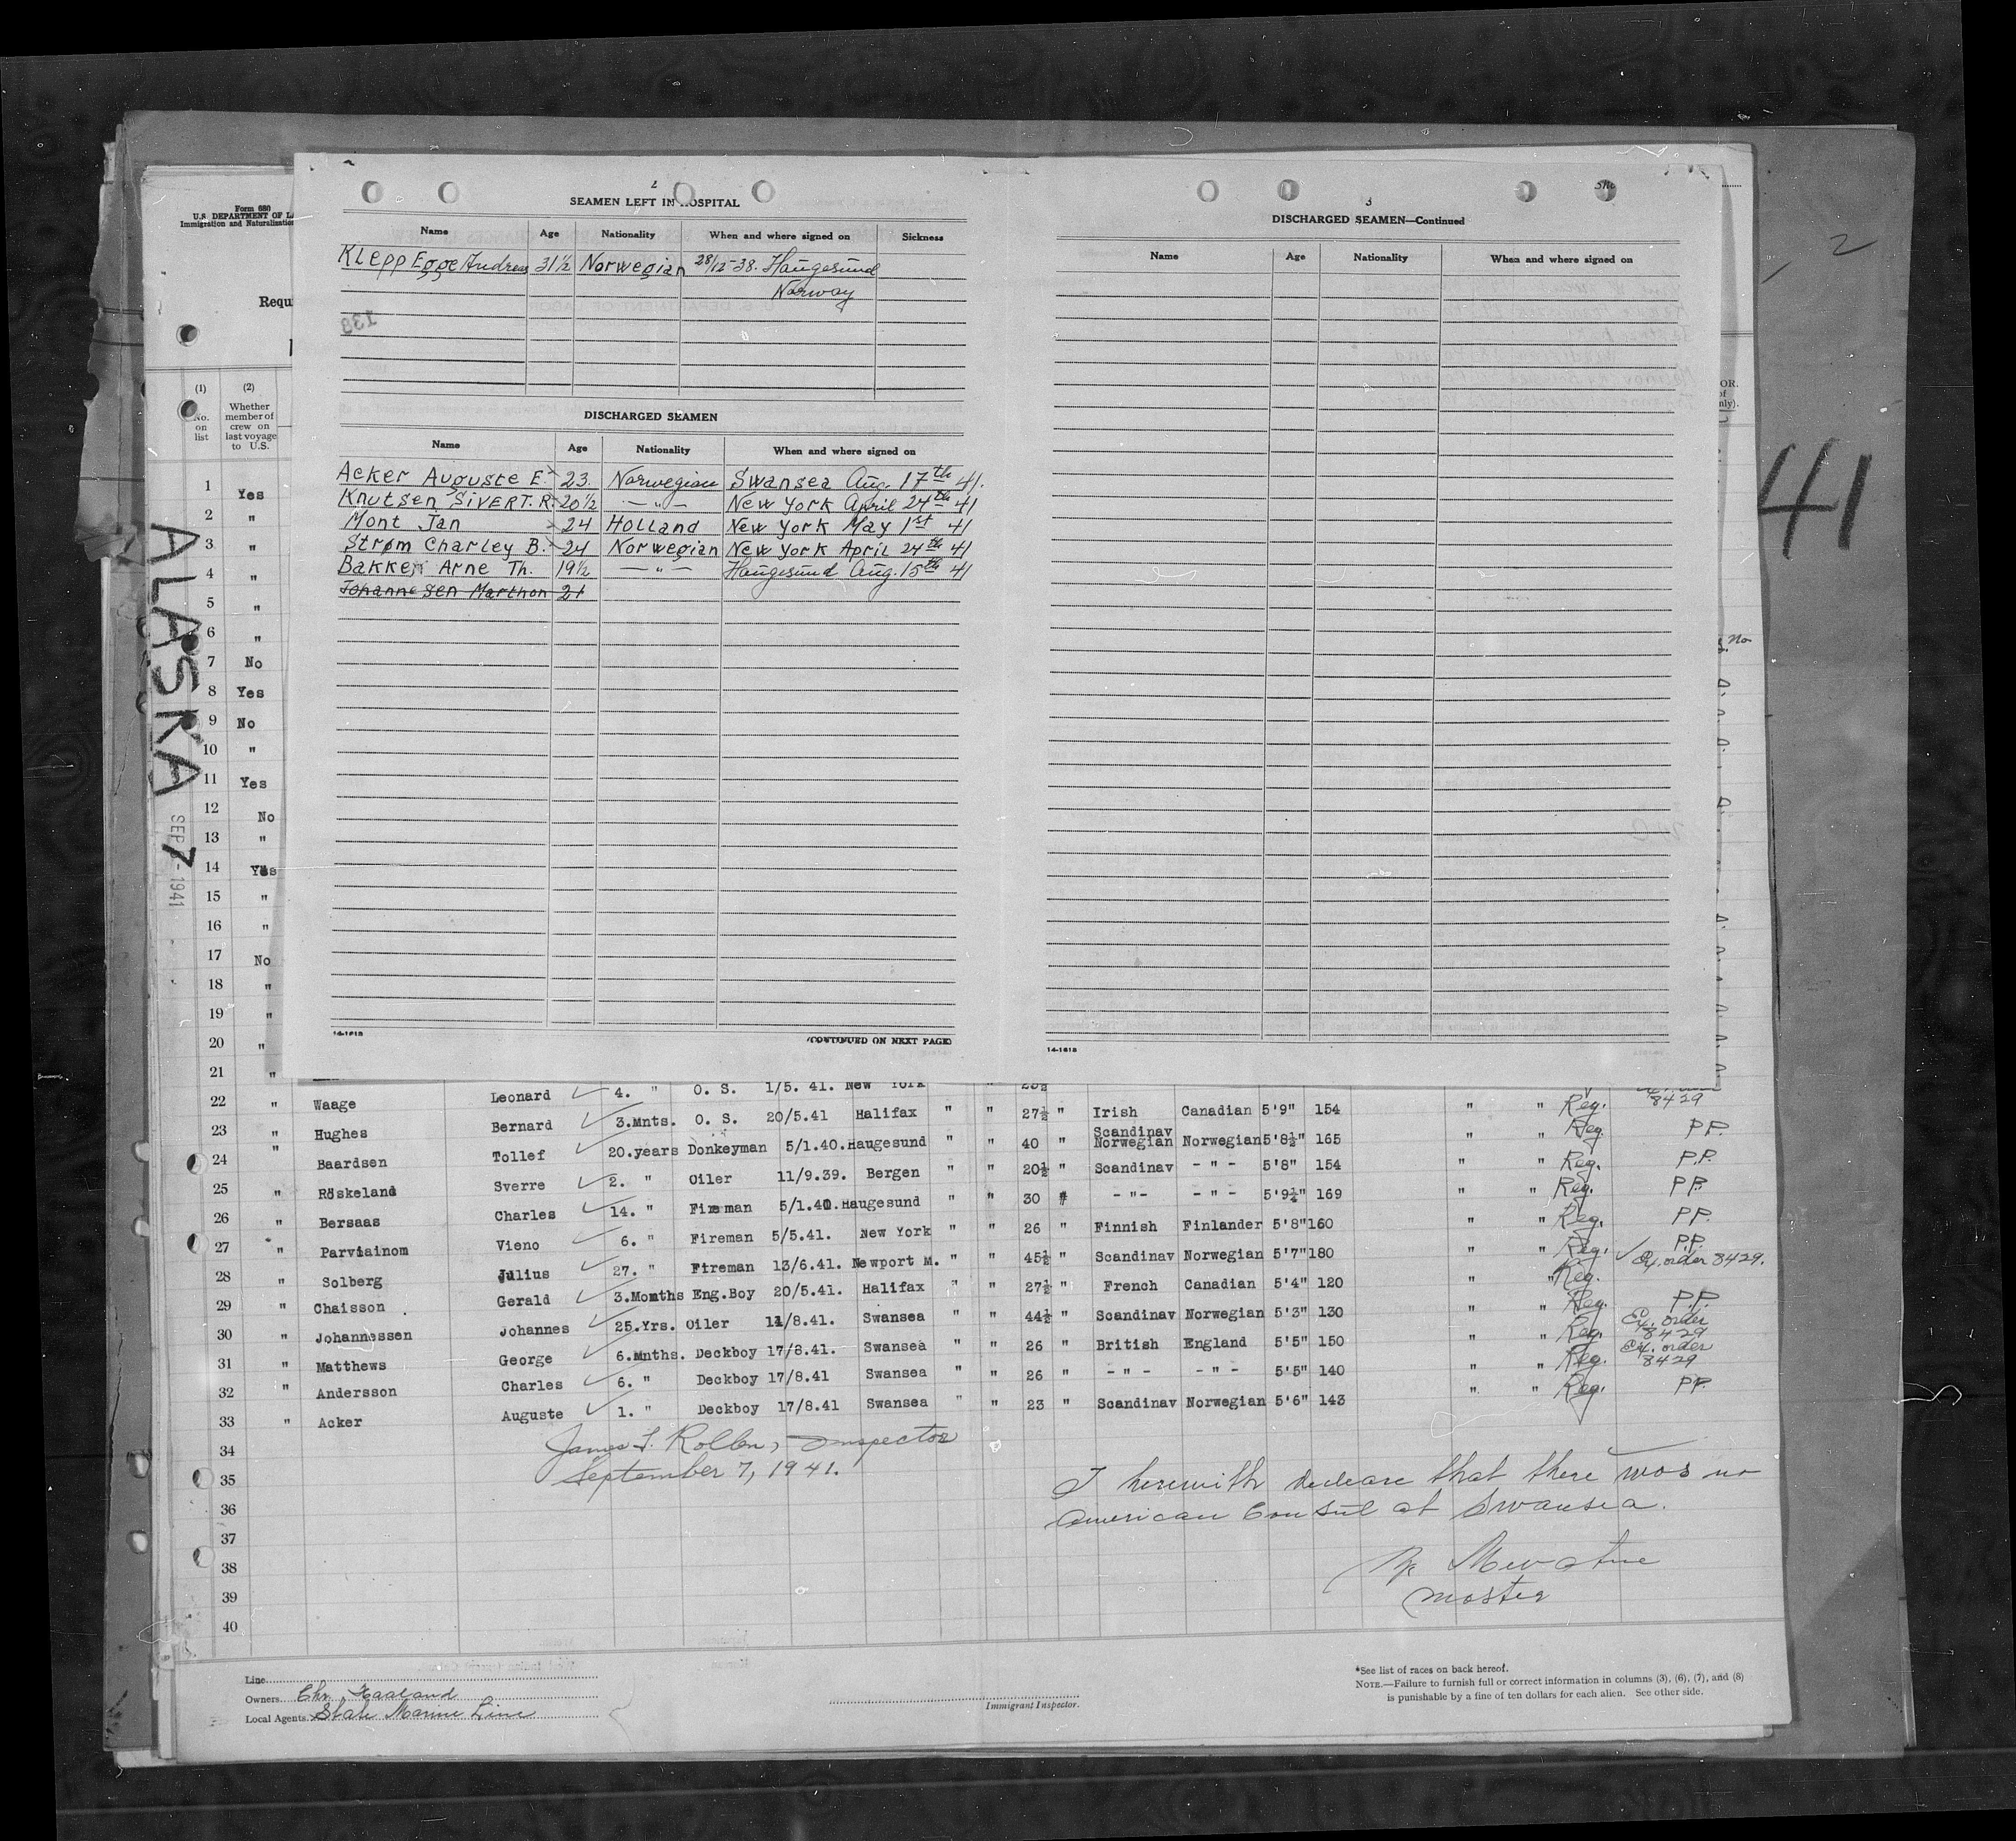 2
SEAMEN LEFT IN HOSPITAL
Name Age Nationality When and where signed on Sickness
Klepp Egge Andreas 31½ Norwegian 28/12-38. Haugesund
Norway
138
DISCHARGED SEAMEN
Name Age Nationality When and where signed on
Acker Auguste E. 23. Norwegian Swansea Aug. 17th 41.
Knutsen Sivert. R. 20½ —"— New York April 24th 41
Mont Jan 24 Holland New York May 1st 41
Strøm Charley B. 24 Norwegian New York April 24th 41
Bakken Arne Th. 19½ —"— Haugesund Aug. 15th 41
Johannesen Marthon 21
14-1618
(CONTINUED ON NEXT PAGE)
3
DISCHARGED SEAMEN—Continued
Name Age Nationality When and where signed on
14-1618
2
41
Form 680
U.S. DEPARTMENT OF LA
Immigration and Naturalization
Requ
(1) No. on list
(2) Whether member of crew on last voyage to U.S.
OR.
of
nly).
ALASKA
SEP 7 - 1941
No
1 Yes
2 "
3 "
4 "
5 "
6 "
7 No
8 Yes
9 No
10 "
11 Yes
12 No
13 "
14 Yes
15 "
16 "
17 No
18 "
19 "
20 "
21 "
22 " Waage Leonard 4. " O. S. 1/5. 41. New York " "
8429
23 " Hughes Bernard 3.Mnts. O. S. 20/5.41 Halifax " " 27½ " Irish Canadian 5'9" 154 " " Reg.
24 " Baardsen Tollef 20.years Donkeyman 5/1.40. Haugesund " " 40 " Scandinav Norwegian Norwegian 5'8½" 165 " " Reg. P.P.
25 " Röskeland Sverre 2. " Oiler 11/9.39. Bergen " " 20½ " Scandinav - " - 5'8" 154 " " Reg. P.P.
26 " Bersaas Charles 14. " Fireman 5/1.40. Haugesund " " 30 " - "- - " - 5'9½" 169 " " Reg. P.P.
27 " Parviainom Vieno 6. " Fireman 5/5.41. New York " " 26 " Finnish Finlander 5'8" 160 " " Reg. P.P.
28 " Solberg Julius 27. " Fireman 13/6.41. Newport M. " " 45½ " Scandinav Norwegian 5'7" 180 " " Reg. P.P.
Ex. order 8429.
29 " Chaisson Gerald 3.Months Eng.Boy 20/5.41. Halifax " " 27½ " French Canadian 5'4" 120 " " Reg.
30 " Johannessen Johannes 25.Yrs. Oiler 11/8.41. Swansea " " 44½ " Scandinav Norwegian 5'3" 130 " " Reg. P.P.
31 " Matthews George 6.Mnths. Deckboy 17/8.41. Swansea " " 26 " British England 5'5" 150 " " Reg. Ex. order 8429
32 " Andersson Charles 6. " Deckboy 17/8.41 Swansea " " 26 " - " - - " - 5'5" 140 " " Reg. Ex. order 8429
33 " Acker Auguste 1. " Deckboy 17/8.41 Swansea " " 23 " Scandinav Norwegian 5'6" 143 " " Reg. P.P.
34
James F. Rollen, Inspector
35
September 7, 1941.
36
37
38
39
40
I herewith declare that there was no
American Consul at Swansea.
master
Line
Owners. Chr. Haaland
Local Agents. State Marine Line
Immigrant Inspector.
*See list of races on back hereof.
NOTE.—Failure to furnish full or correct information in columns (3), (6), (7), and (8)
is punishable by a fine of ten dollars for each alien. See other side.